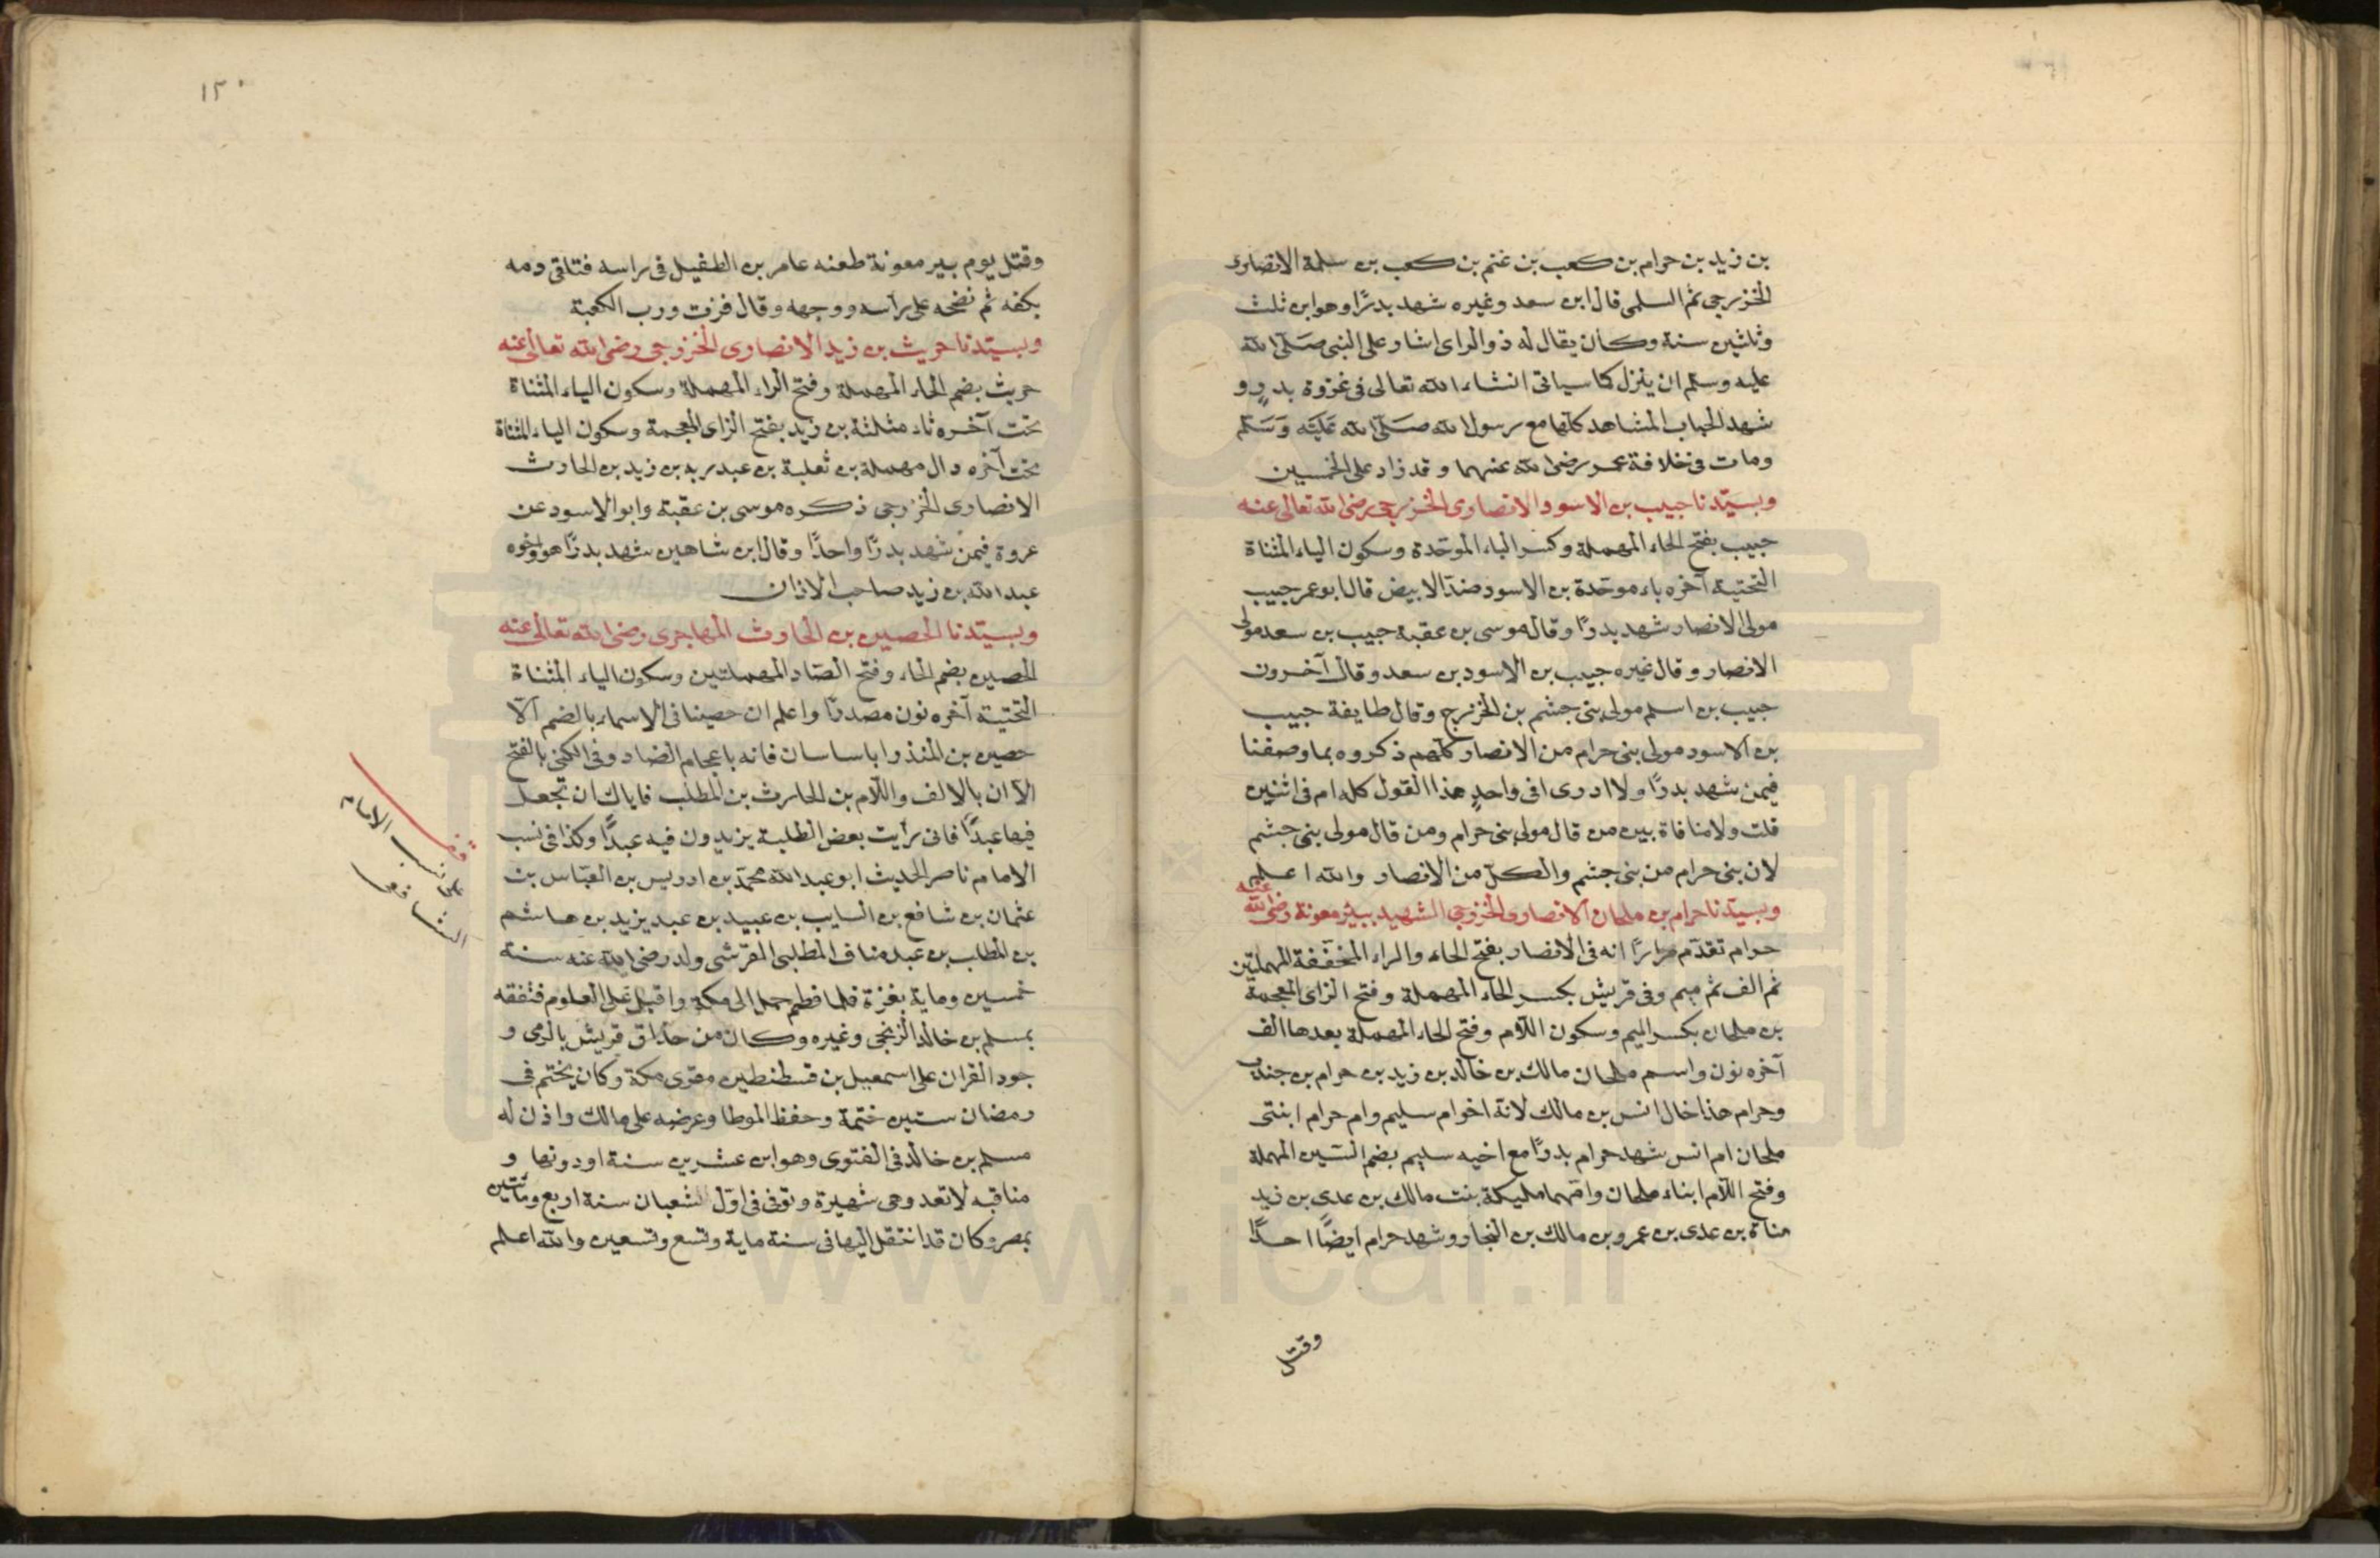 بن زيد بن حرام بن كعب بن غنم بن كعب بن سلمة الانصارى
الخزرجى ثم السلمى قال ابن سعد وغيره شهد بدرًا وهو ابن ثلث
وثلثين سنة وكان يقال له ذو الراى اشار على النبى صلى الله
عليه وسلم ان ينزل كما سياتى انشاء الله تعالى فى غزوة بدرٍ و
شهد الحباب المشاهد كلها مع رسول الله صلى الله عليه وسلم
ومات فى خلافة عمر رضى الله عنهما وقد زاد على الخمسين
وبسيّدنا حبيب بن الاسود الانصارى الخزرجى رضى الله تعالى عنه
حبيب بفتح الحاء المهملة وكسر الباء الموحّدة وسكون الياء المثناة
التحتية آخره باء موحّدة بن الاسود ضد الابيض قال ابو عمر حبيب
مولى الانصار شهد بدرًا وقال موسى بن عقبة حبيب بن سعد مولى
الانصار وقال غيره حبيب بن الاسود بن سعد وقال آخرون
حبيب بن اسلم مولى بنى جشم بن الخزرج وقال طايفة حبيب
بن الاسود مولى بنى حرام من الانصار كلهم ذكروه بما وصفنا
فيمن شهد بدرًا ولا ادرى افى واحدٍ هذا القول كله ام فى اثنين
قلت ولا منافاة بين من قال مولى بنى حرام ومن قال مولى بنى جشم
لان بنى حرام من بنى جشم والكل من الانصار والله اعلم
وبسيّدنا حرام بن ملحان الانصارى الخزرجى الشهيد ببئر معونة رضى الله عنه
حرام تقدّم مرارًا انه فى الانصار بفتح الحاء والراء المخففة المهملتين
ثم الف ثم ميم وفى قريش بكسر الحاء المهملة وفتح الزاى المعجمة
بن ملحان بكسر الميم وسكون اللام وفتح الحاء المهملة بعدها الف
آخره نون واسم ملحان مالك بن خالد بن زيد بن حرام بن جندب
وحرام هذا خال انس بن مالك لانه اخو ام سليم وام حرام ابنتى
ملحان ام انس شهد حرام بدرًا مع اخيه سليم بضم السين المهملة
وفتح اللام ابناء ملحان وامّهما مليكة بنت مالك بن عدى بن زيد
مناة بن عدى بن عمرو بن مالك بن النجار وشهد حرام ايضًا احدًا
وقتل
١٢٠
وقتل يوم بير معونة طعنه عامر بن الطفيل فى راسه فتلقى دمه
بكفه ثم نضحه على راسه ووجهه وقال فزت ورب الكعبة
وبسيّدنا حريث بن زيد الانصارى الخزرجى رضى الله تعالى عنه
حريث بضم الحاء المهملة وفتح الراء المهملة وسكون الياء المثناة
تحت آخره ثاء مثلثة بن زيد بفتح الزاى المعجمة وسكون الياء المثناة
تحت آخره دال مهملة بن ثعلبة بن عبد ربه بن زيد بن الحارث
الانصارى الخزرجى ذكره موسى بن عقبة وابو الاسود عن
عروة فيمن شهد بدرًا واحدًا وقال ابن شاهين شهد بدرًا هو واخوه
عبد الله بن زيد صاحب الاذان
وبسيّدنا الحصين بن الحارث المهاجرى رضى الله تعالى عنه
الحصين بضم الحاء وفتح الصاد المهملتين وسكون الياء المثناة
التحتية آخره نون مصدرًا واعلم ان حصينا فى الاسماء بالضم الّا
حصين بن المنذر ابا ساسان فانه باعجام الضاد وفى الكنى بالفتح
الآ ان بالالف واللام بن الحارث بن المطلب فاياك ان تجعل
فيها عبدًا فانى رأيت بعض الطلبة يزيدون فيه عبدًا وكذا فى نسب
الامام ناصر الحديث ابو عبد الله محمّد بن ادريس بن العبّاس بن
عثمان بن شافع بن السايب بن عبيد بن عبد يزيد بن هاشم
بن المطلب بن عبد مناف المطلبى القرشى ولد رضى الله عنه سنة
خمسين وماية بغزة فلما فطم حمل الى مكة واقبل على العلوم فتفقه
بمسلم بن خالد الزنجى وغيره وكان من حذاق قريش بالرمى و
جود القران على اسمعيل بن قسطنطين مقرى مكة وكان يختم فى
رمضان ستين ختمة وحفظ الموطا وعرضه على مالك واذن له
مسلم بن خالد فى الفتوى وهو ابن عشرين سنة او دونها و
مناقبه لا تعد وهى شهيرة وتوفى فى اول شعبان سنة اربع ومأتين
بمصر وكان قد انتقل اليها فى سنة ماية وتسع وتسعين والله اعلم
قف
على نسب الامام
الشافعى
www.icar.ir